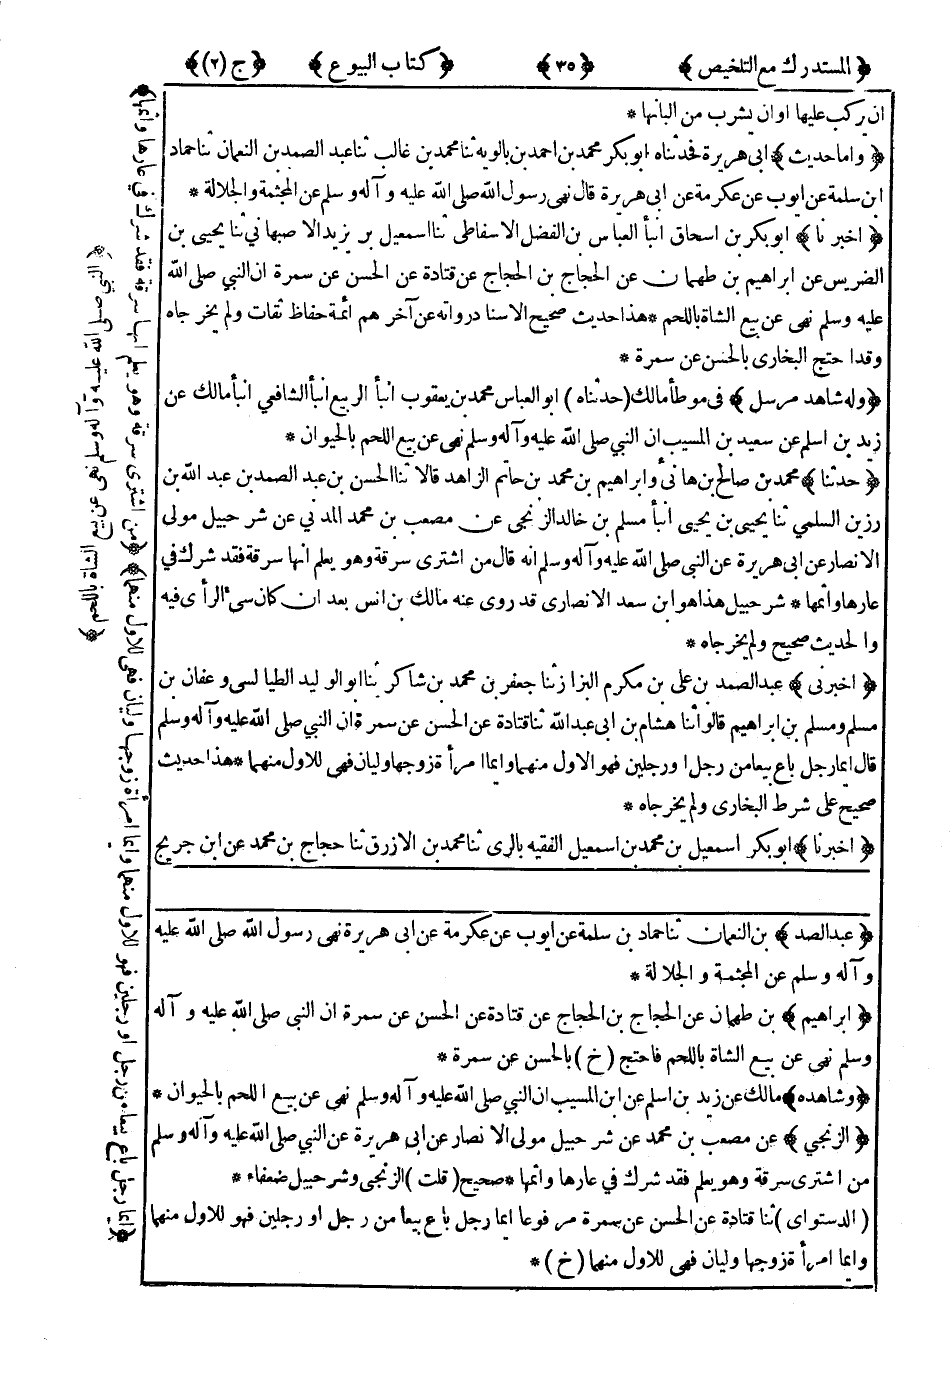 ﴿ المستدرك مع التلخيص ﴾ ﴿ ٣٥ ﴾ ﴿ كتاب البيوع ﴾ ﴿ ج (٢) ﴾
ان يركب عليها او ان يشرب من البانها *
﴿ واما حديث ﴾ ابى هريرة فحدثناه ابو بكر محمد بن احمد بن بالويه ثنا محمد بن غالب ثنا عبد الصمد بن النعمان ثنا حماد
ابن سلمة عن ايوب عن عكرمة عن ابى هريرة قال نهى رسول الله صلى الله عليه و آله و سلم عن المجثمة والجلالة *
﴿ اخبرنا ﴾ ابو بكر بن اسحاق انبأ العباس بن الفضل الاسفاطى ثنا اسمعيل بن يزيد الاصبهاني ثنا يحيى بن
الضريس عن ابراهيم بن طهمان عن الحجاج بن الحجاج عن قتادة عن الحسن عن سمرة ان النبي صلى الله
عليه وسلم نهى عن بيع الشاة باللحم * هذا حديث صحيح الاسناد رواته عن آخرهم أئمة حفاظ ثقات ولم يخرجاه
وقد احتج البخارى بالحسن عن سمرة *
﴿ وله شاهد مرسل ﴾ فى موطأ مالك (حدثناه) ابو العباس محمد بن يعقوب انبأ الربيع انبأ الشافعي انبأ مالك عن
زيد بن اسلم عن سعيد بن المسيب ان النبي صلى الله عليه وآله وسلم نهى عن بيع اللحم بالحيوان *
﴿ حدثنا ﴾ محمد بن صالح بن هانىٔ وابراهيم بن محمد بن حاتم الزاهد قالا ثنا الحسن بن عبد الصمد بن عبد الله بن
رزين السلمي ثنا يحيى بن يحيى انبأ مسلم بن خالد الزنجى عن مصعب بن محمد المدني عن شرحبيل مولى
الانصار عن ابى هريرة عن النبي صلى الله عليه وآله وسلم انه قال من اشترى سرقة وهو يعلم انها سرقة فقد شرك فى
عارها واثمها * شرحبيل هذا هو ابن سعد الانصارى قد روى عنه مالك بن انس بعد ان كان سىٔ الرأى فيه
والحديث صحيح ولم يخرجاه *
﴿ اخبرنى ﴾ عبد الصمد بن على بن مكرم البزاز ثنا جعفر بن محمد بن شاكر ثنا ابو الوليد الطيالسى و عفان بن
مسلم ومسلم بن ابراهيم قالوا ثنا هشام بن ابى عبد الله ثنا قتادة عن الحسن عن سمرة ان النبي صلى الله عليه وآله وسلم
قال ايما رجل باع بيعا من رجل او رجلين فهو الاول منهما وايما امرأة زوجها وليان فهى للاول منهما * هذا حديث
صحيح على شرط البخارى ولم يخرجاه *
﴿ اخبرنا ﴾ ابو بكر اسمعيل بن محمد بن اسمعيل الفقيه بالرى ثنا محمد بن الازرق ثنا حجاج بن محمد عن ابن جريج
﴿ عبد الصد ﴾ بن النعمان ثنا حماد بن سلمة عن ايوب عن عكرمة عن ابى هريرة نهى رسول الله صلى الله عليه
و آله و سلم عن المجثمة و الجلالة *
﴿ ابراهيم ﴾ بن طهمان عن الحجاج بن الحجاج عن قتادة عن الحسن عن سمرة ان النبى صلى الله عليه و آله
وسلم نهى عن بيع الشاة باللحم فاحتج (خ) بالحسن عن سمرة *
﴿ وشاهده ﴾ مالك عن زيد بن اسلم عن ابن المسيب ان النبي صلى الله عليه و آله وسلم نهى عن بيع اللحم بالحيوان *
﴿ الزنجي ﴾ عن مصعب بن محمد عن شرحبيل مولى الانصار عن ابى هريرة عن النبي صلى الله عليه وآله وسلم
من اشترى سرقة وهو يعلم فقد شرك فى عارها واثمها * صحيح (قلت) الزنجى وشرحبيل ضعفاء *
(الدستواى) ثنا قتادة عن الحسن عن سمرة مرفوعا ايما رجل باع بيعا من رجل او رجلين فهو للاول منهما
وايما امرأة زوجها وليان فهى للاول منهما (خ) *
﴿ ايما رجل باع بيعا من رجل او رجلين فهو للاول منهما وايما امرأة زوجها وليان فهى للاول منهما ﴾ ﴿ من اشترى سرقة وهو يعلم انها سرقة فقد شرك فى عارها واثمها ﴾